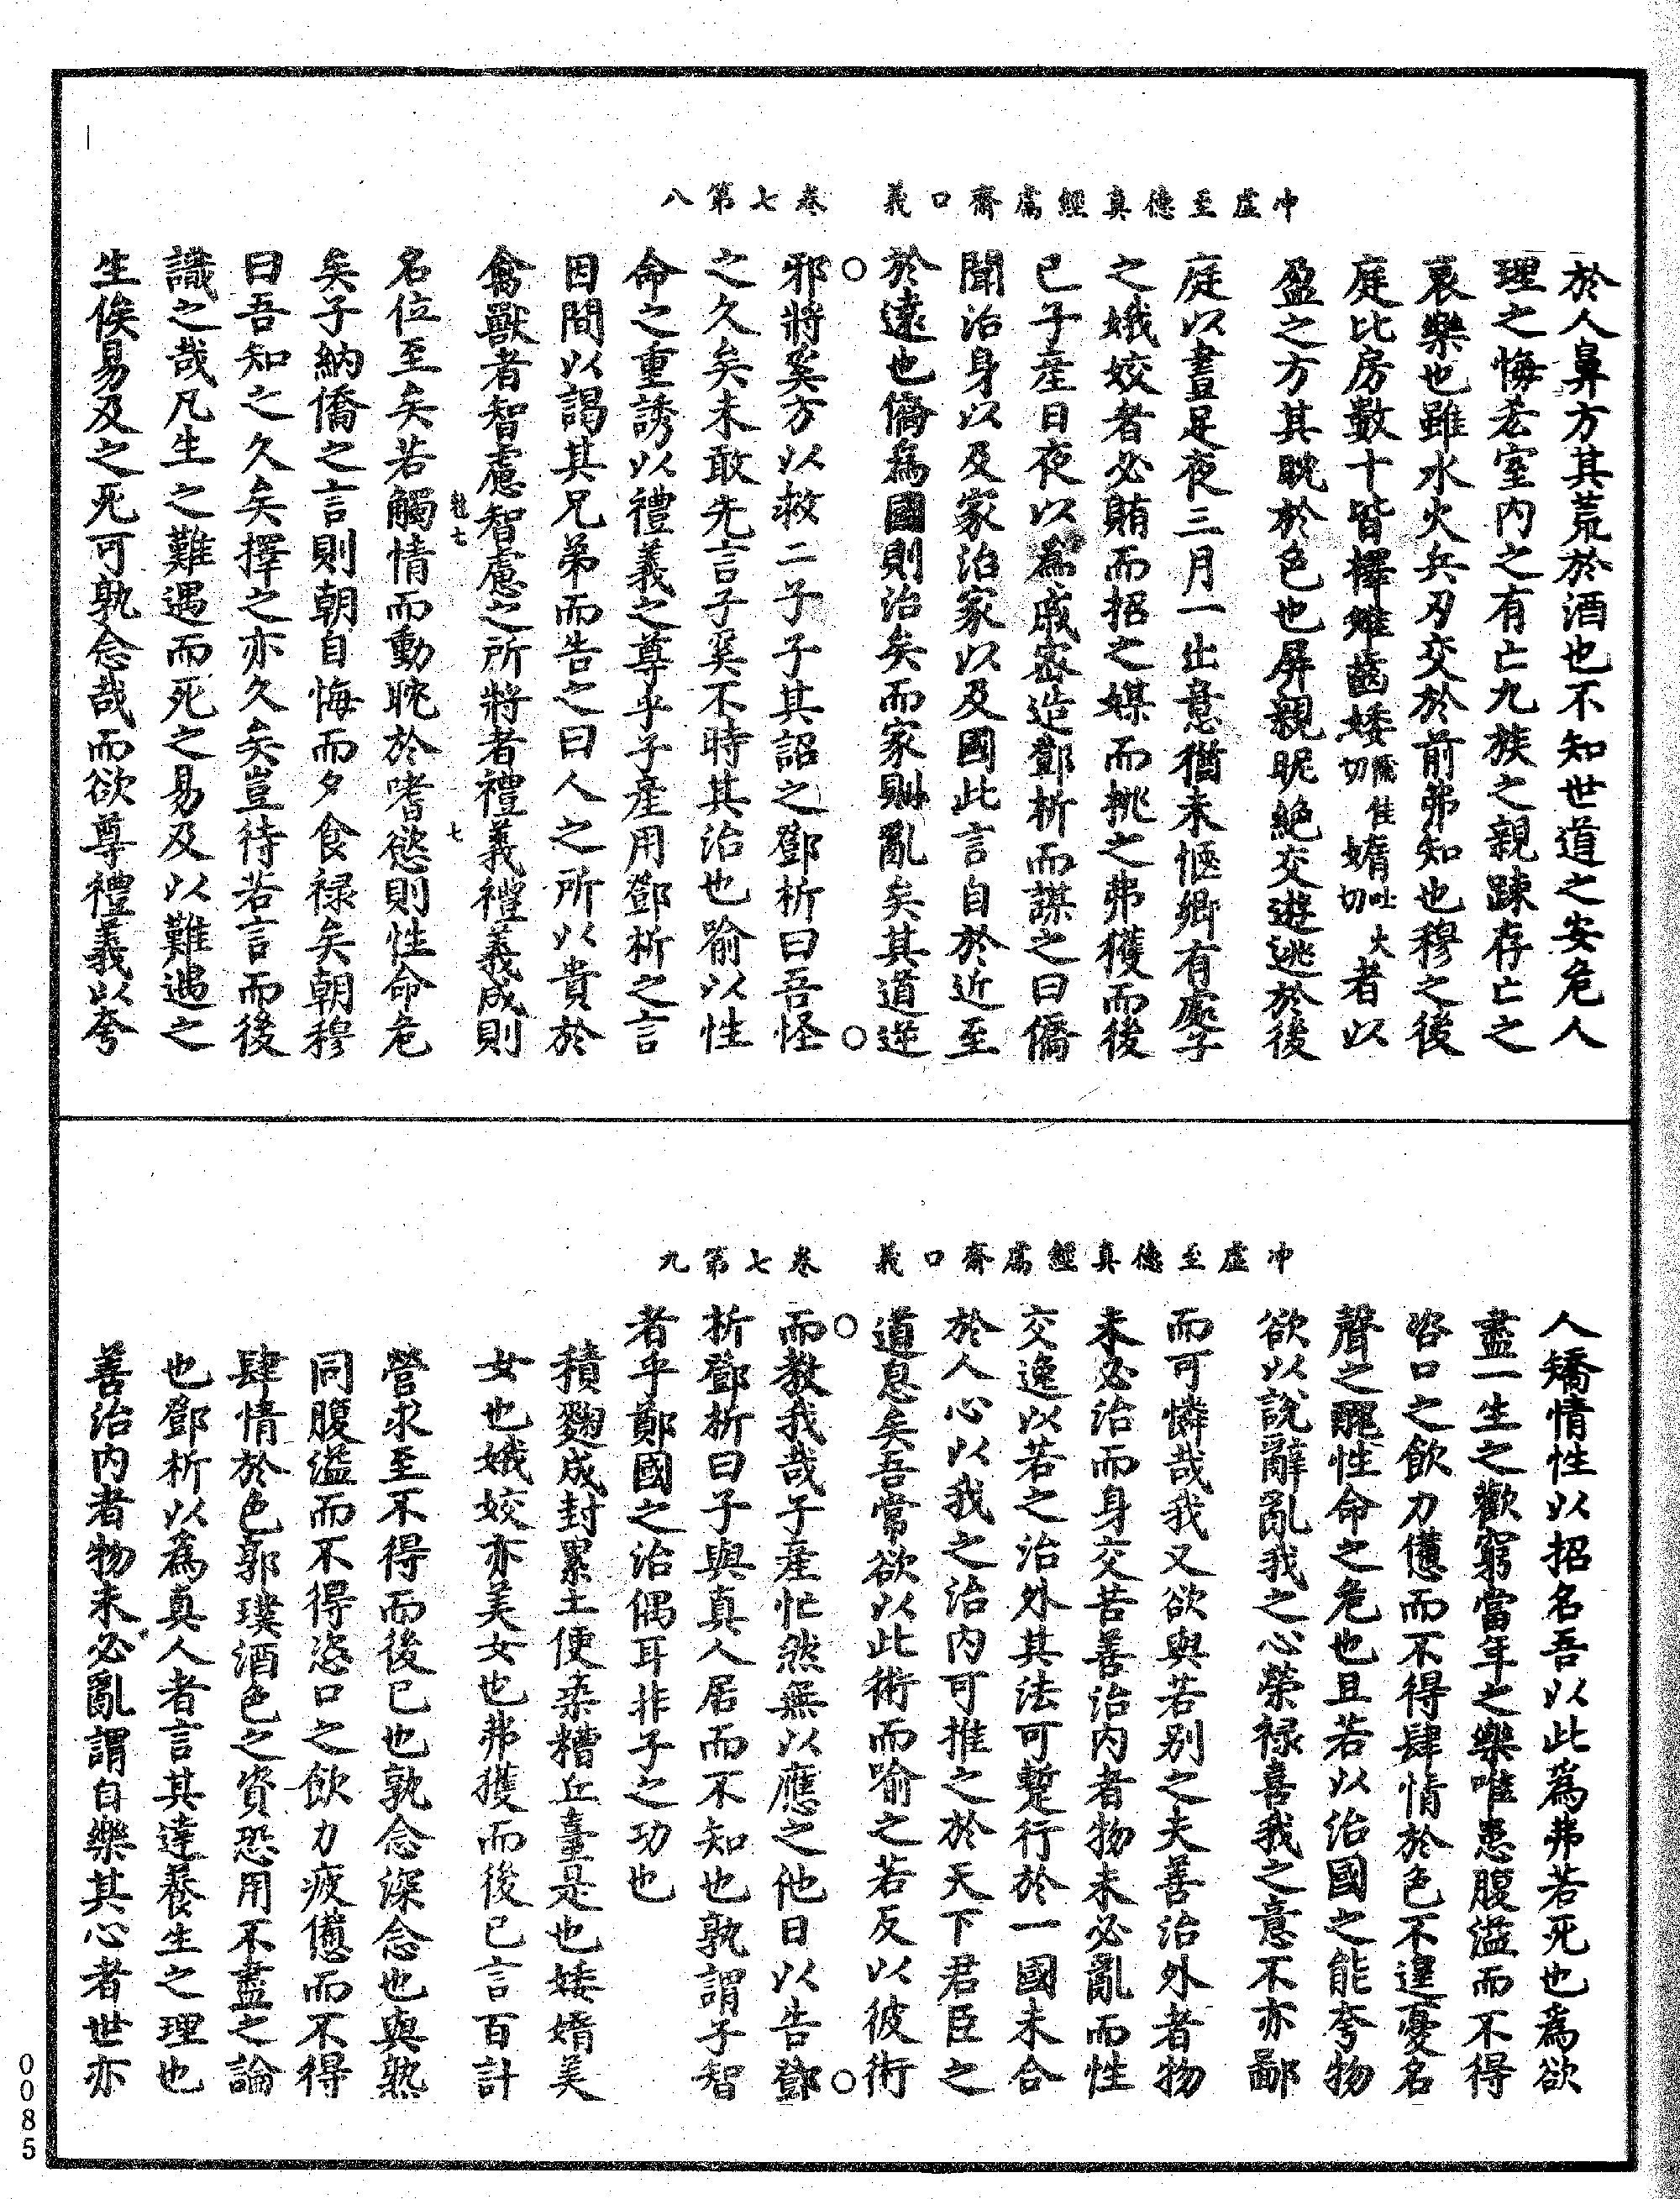 冲虛至德真經鬳齋口義　卷七第八
於人鼻方其荒於酒也不知世道之安危人
理之悔吝室內之有亡九族之親踈存亡之
哀樂也雖水火兵刃交於前弗知也穆之後
庭比房數十皆擇稚齒婑切㜪隹媠切吐火者以
盈之方其耽於色也屏親昵絶交遊逃於後
庭以晝足夜三月一出意猶未愜鄉有處子
之娥姣者必賄而招之媒而挑之弗獲而後
已子產日夜以為戚宻造鄧析而謀之曰僑
聞治身以及家治家以及國此言自於近至
於遠也僑為國則治矣而家則亂矣其道逆
邪將奚方以救二子子其詔之鄧析曰吾怪
之久矣未敢先言子奚不時其治也喻以性
命之重誘以禮義之尊乎子產用鄧析之言
因間以謁其兄弟而告之曰人之所以貴於
禽獸者智慮智慮之所將者禮義禮義成則
名位至矣若觸情而動耽於嗜慾則性命危
矣子納僑之言則朝自悔而夕食禄矣朝穆
曰吾知之久矣擇之亦久矣豈待若言而後
識之哉凡生之難遇而死之易及以難遇之
生俟易及之死可孰念哉而欲尊禮義以夸
冲虛至德真經鬳齋口義　卷七第九
人矯情性以招名吾以此為弗若死也為欲
盡一生之歡窮當年之樂唯患腹溢而不得
恣口之飲力憊而不得肆情於色不遑憂名
聲之醜性命之危也且若以治國之能夸物
欲以說辭亂我之心榮禄喜我之意不亦鄙
而可憐哉我又欲與若别之夫善治外者物
未必治而身交苦善治内者物未必亂而性
交逸以若之治外其法可蹔行於一國未合
於人心以我之治内可推之於天下君臣之
道息矣吾常欲以此術而喻之若反以彼術
而教我哉子產忙然無以應之他日以告鄧
析鄧析曰子與真人居而不知也孰謂子智
者乎鄭國之治偶耳非子之功也
積麴成封累土便桒糟丘臺是也婑媠美
女也娥姣亦美女也弗獲而後已言百計
營求至不得而後已也孰念深念也與熟
同腹溢而不得恣口之飲力疲憊而不得
肆情於色郭璞酒色之資恐用不盡之論
也鄧析以為真人者言其達養生之理也
善治内者物未必亂謂自樂其心者世亦
0085